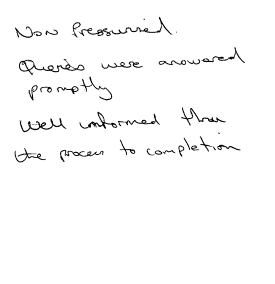 Non Pressurised.
Queries were answered
promptly
Well informed thru
the process to completion